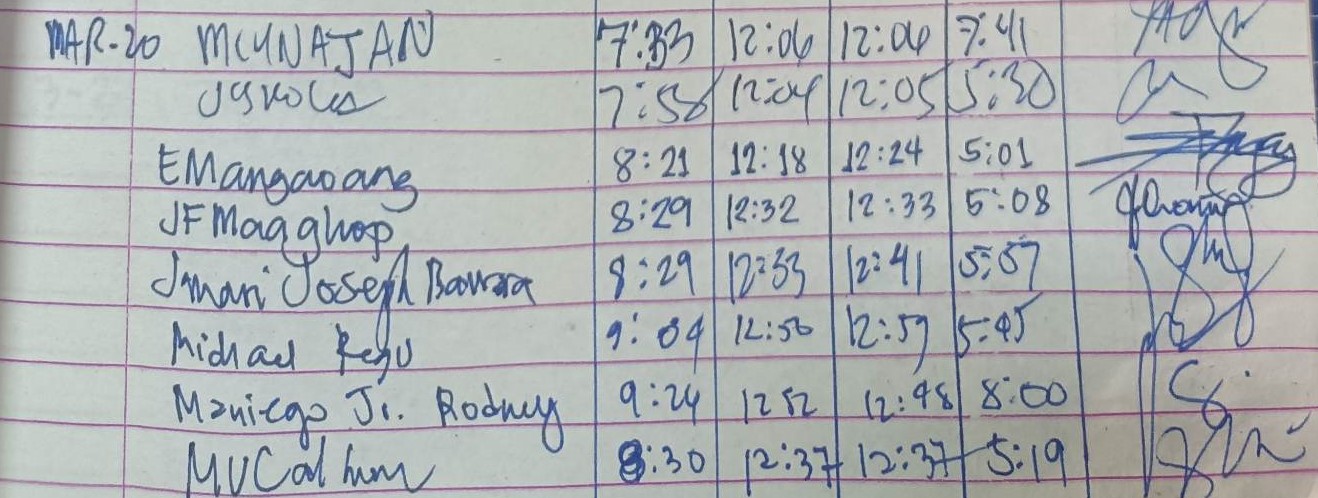 MAR-20 MCYNAJAN 7:33 12:06 12:06 7:41
7:58 12:04 12:05 5:30
EMangaoang 8:21 12:18 12:24 5:01
JFMagghop 8:29 12:32 12:33 5:08
Jmari Joseph 8:29 12:33 12:41 5:57
Michael 9:04 12:50 12:59 5:45
Maniego Jr. Rodney 9:24 12 52 12:48 8:00
8:30 12:37 12:37 5:19